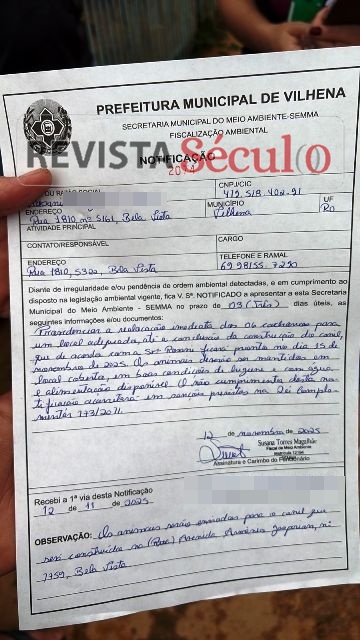 PREFEITURA MUNICIPAL DE VILHENA
SECRETARIA MUNICIPAL DO MEIO AMBIENTE-SEMMA
FISCALIZAÇÃO AMBIENTAL
REVISTA Século
NOTIFICAÇÃO
CNPJ/CIC
419.518.402-91
ENDEREÇO
Rua 1810 nº 5161, Bela Vista
MUNICÍPIO
Vilhena
UF
RO
ATIVIDADE PRINCIPAL
CONTATO/RESPONSÁVEL
CARGO
ENDEREÇO
Rua 1810, 5322, Bela Vista
TELEFONE E RAMAL
69 98155.7290
Diante de irregularidade e/ou pendência de ordem ambiental detectadas, e em cumprimento ao
disposto na legislação ambiental vigente, fica V. Sª. NOTIFICADO a apresentar a esta Secretaria
Municipal do Meio Ambiente - SEMMA no prazo de 03 (três) dias úteis, as
seguintes informações e/ou documentos:
Providenciar a realocação imediata dos 06 cachorros para
um local adequado, até a conclusão da construção do canil,
que de acordo com a Srª ficará pronto no dia 15 de
novembro de 2025. Os animais deverão ser mantidos em
local coberto, em boas condições de higiene e com água
e alimentação disponível. O não cumprimento desta no-
tificação acarretará em sanções previstas na Lei Comple-
mentar 173/2011.
12 de novembro de 2025
Susana Torres Magalhãe
Fiscal de Meio Ambiente
Matrícula
Assinatura e Carimbo do Funcionário
Recebi a 1ª via desta Notificação
12 de 11 de 2025
OBSERVAÇÃO: Os animais serão enviados para o canil que
será construído na (Rua) Avenida
7759, Bela Vista